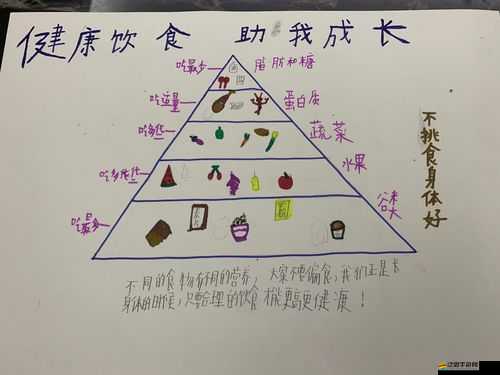 健康饮食 助我成长
吃最少
脂肪和糖
吃适量
蛋白质
吃多些
蔬菜
吃多些
水果
吃最多
谷类
不挑食身体好
不同的食物有不同的营养,大家不要偏食,我们正是长
身体的时候,只要合理的饮食才能更高更健康!